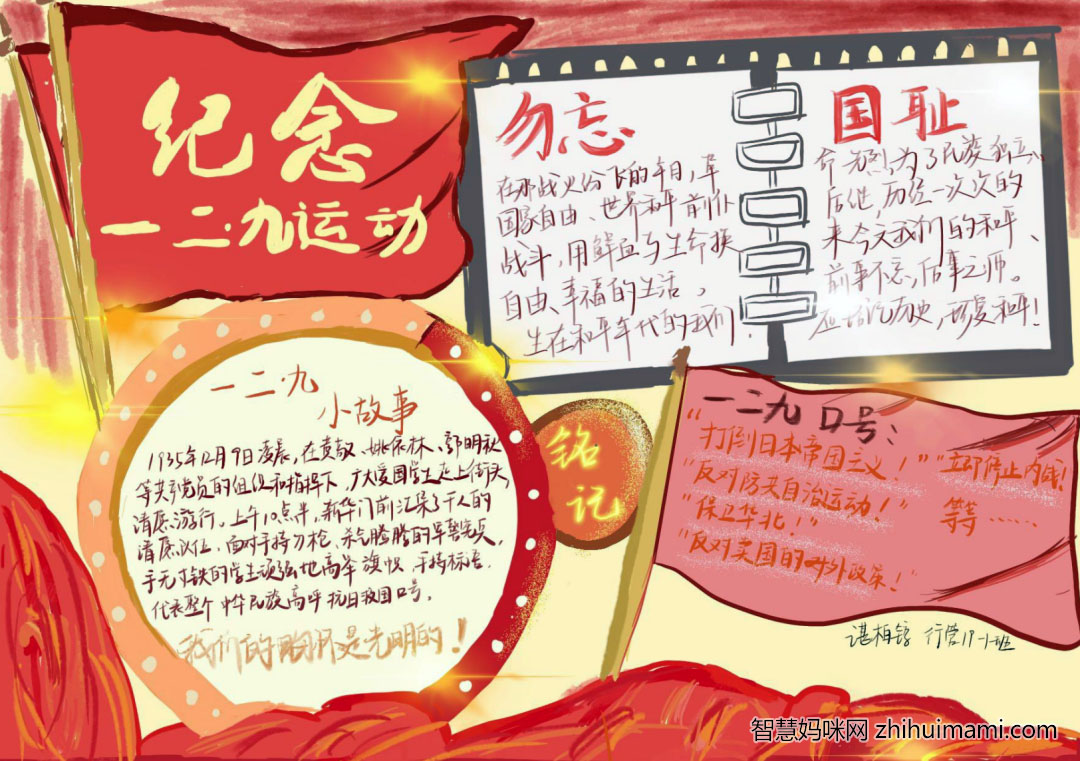 纪念
一二·九运动
勿忘
在那战火纷飞的年日,革
国家自由、世界和平前仆
战斗,用鲜血与生命换
自由、幸福的生活,
生在和平年代的我们
国耻
命先烈,为了民族独立、
后继,历经一次次的
来今天我们的和平、
前事不忘,后事之师。
历史,和平!
一二·九
小故事
1935年12月9日凌晨,在黄敬、姚依林、郭明秋
等共产党员的组织和指挥下,广大爱国学生走上街头
请愿游行。上午10点半,新华门前汇集了千人的
请愿队伍,面对手持刀枪、杀气腾腾的军警宪兵,
手无寸铁的学生顽强地高举旗帜、手持标语,
代表整个中华民族高呼抗日救国口号。
我们的胸怀是光明的!
铭
记
一二九口号:
“打倒日本帝国主义!”“立即停止内战!
“反对防共自治运动!”
等……
“保卫华北!”
“反对卖国的对外政策!”
谌相锌 行管19-1班
智慧妈咪网 zhihuimami.com